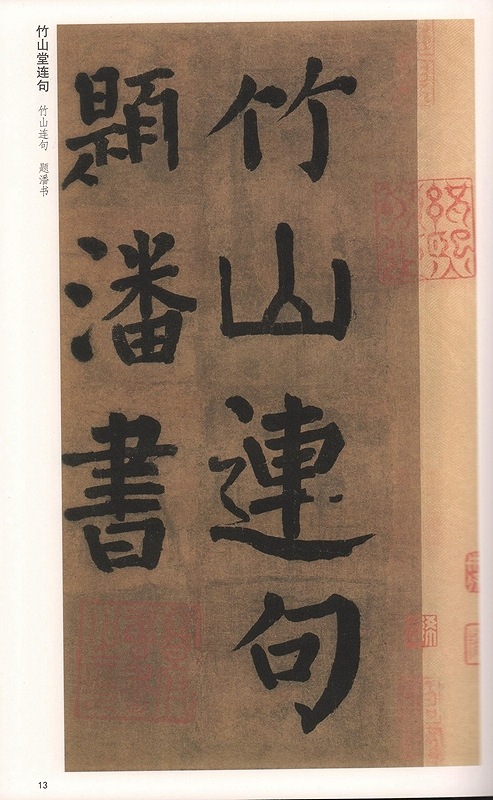 竹山堂连句 竹山连句 题潘书
竹山連句
題潘書
13